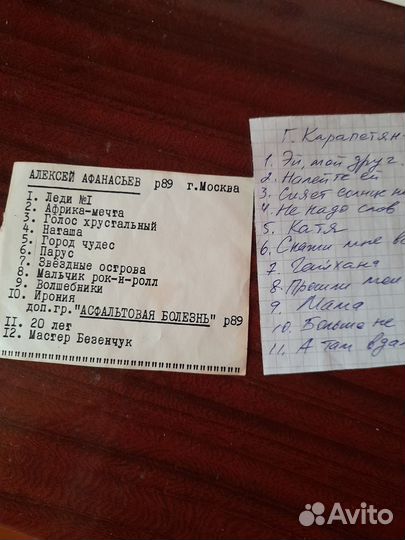 АЛЕКСЕЙ АФАНАСЬЕВ р89 г.Москва
1. Леди №1
2. Африка-мечта
3. Голос хрустальный
4. Наташа
5. Город чудес
6. Парус
7. Звёздные острова
8. Мальчик рок-н-ролл
9. Волшебники
10. Ирония
доп.гр."АСФАЛЬТОВАЯ БОЛЕЗНЬ" р89
11. 20 лет
12. Мастер Безенчук
Г. Карапетян
1. Эй, мой друг
2. Налейте ей
3. Сияет солнце
4. Не надо слов
5. Катя
6. Скажи мне
7. Чайхана
8. Прошли мои
9. Мама
10. Больше не
11. А там вдал
Avito